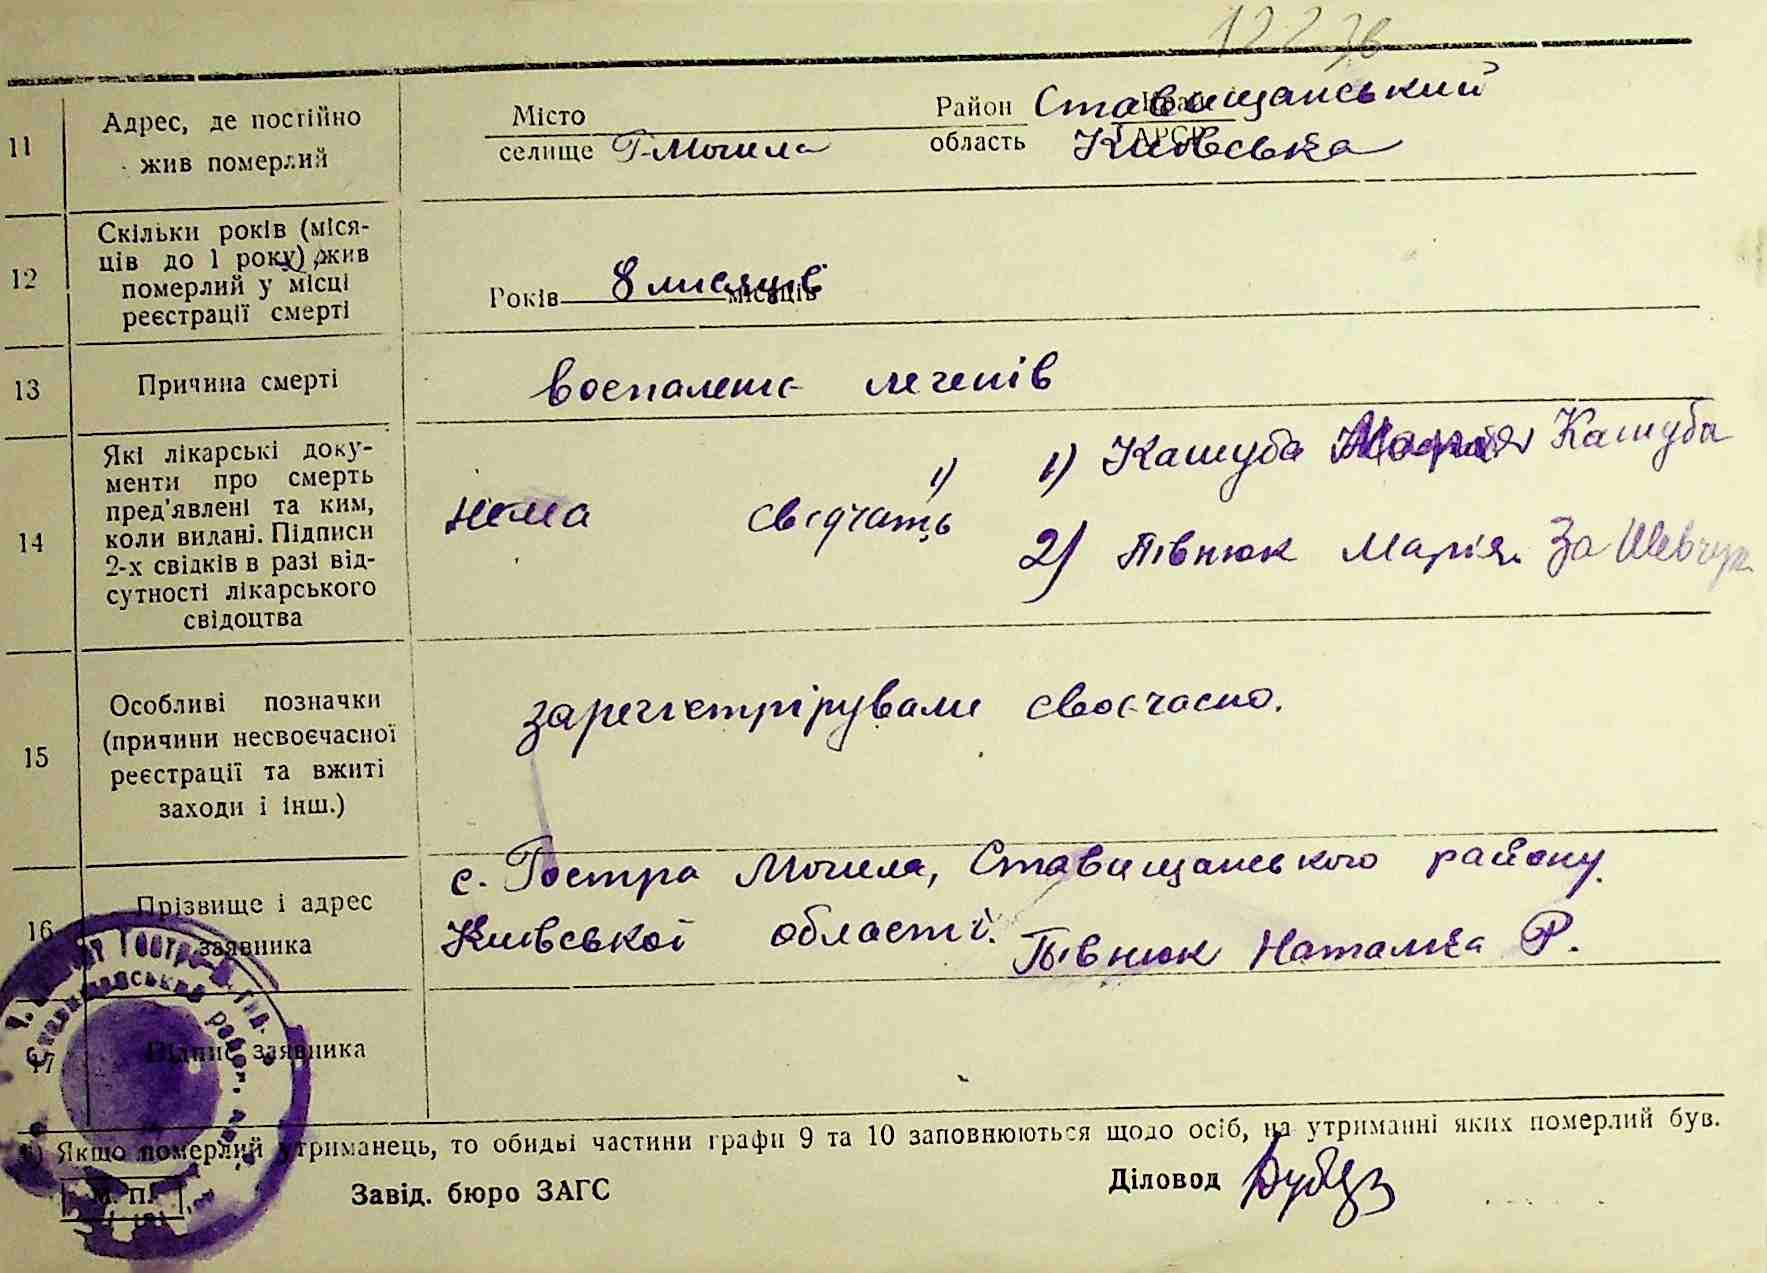 12238
11
Адрес, де постійно
жив померлий
Місто
селище Г-Могила
Район Ставищанський
область Київська
12
Скільки років (міся-
ців до 1 року) жив
померлий у місці
реєстрації смерті
Років 8 місяців
13
Причина смерті
воспалення легенів
14
Які лікарські доку-
менти про смерть
пред'явлені та ким,
коли видані. Підписи
2-х свідків в разі від-
сутності лікарського
свідоцтва
нема свідчать
1) 1) Кашуба Марія Кашуба
2) Півнюк Марія За Шевчук
15
Особливі позначки
(причини несвоєчасної
реєстрації та вжиті
заходи і інш.)
зарегістрірували своєчасно.
16
Прізвище і адрес
заявника
с. Гостра Могила, Ставищанського району
Київської області. Півнюк Наталка Р.
17
Підпис заявника
Якщо померлий утриманець, то обидві частини графи 9 та 10 заповнюються щодо осіб, на утриманні яких померлий був.
М. П.
Завід. бюро ЗАГС
Діловод